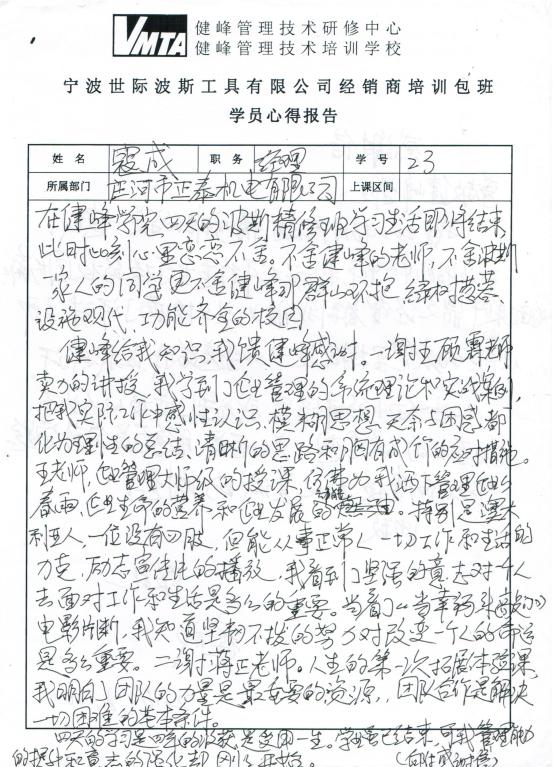 VMTA
健峰管理技术研修中心
健峰管理技术培训学校
宁波世际波斯工具有限公司经销商培训包班
学员心得报告
姓名 霞成 职务 经理 学号 23
所属部门 庄河市正泰机电有限公司 上课区间
在健峰学院四天的波斯精修班学习生活即将结束
此时此刻心里恋恋不舍。不舍健峰的老师,不舍波斯
家人的同学更不舍健峰那群山环抱、绿树葱茏、
设施现代、功能齐全的校园
健峰给我知识,我馈健峰感谢。一谢王硕霖老师
卖力的讲授,我学到了企业管理的系统理论和实战案例,
把我实际工作中感性认识、模糊思想、无奈与困惑都
化为理性的总结、清晰的思路和胸有成竹的应对措施。
王老师,企业管理大师级的授课,为我洒下管理企业的
春雨,企业生命的营养和企业发展的。特别是澳大
利亚人,一位没有四肢,但能从事正常人一切工作和生活的
力克,励志宣传片的播放,我看到了坚强的意志对一个人
去面对工作和生活是多么的重要。当看了《当幸福来敲门》
电影片断,我知道坚韧不拔的努力对改变一个人的命运
是多么重要。二谢蒋正老师。人生的第一次拓展体验课,
我明白了团队的力量是最重要的资源,团队合作是解决
一切困难的基本条件。
四天的学习是四年的收获是受用一生。学习虽已结束,可我管理能力
的提升和意志的强化却刚刚开始。